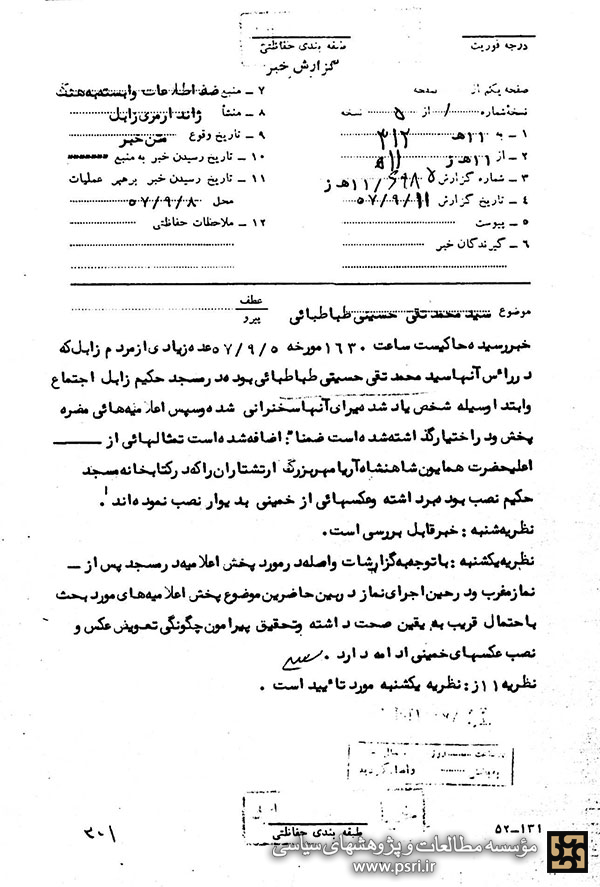 درجه فوریت
طبقه بندی حفاظتی
گزارش خبر
صفحه یکم از صفحه
نسخه شماره ۱ از ۵ نسخه
۱ ـ به ۱۱ هـ ۳۱۲
۲ ـ از ۱۱ هـ ز
۳ ـ شماره گزارش ۱۱ هـ ز
۴ ـ تاریخ گزارش ۵۷/۹/۱۱
۵ ـ پیوست
۶ ـ گیرندگان خبر
۷ ـ منبع ضد اطلاعات وابسته به هنگ
۸ ـ منشأ ژاندارمری زابل
۹ ـ تاریخ وقوع متن خبر
۱۰ ـ تاریخ رسیدن خبر به منبع
۱۱ ـ تاریخ رسیدن خبر برهبر عملیات
محل ۵۷/۹/۸
۱۲ ـ ملاحظات حفاظتی
موضوع سید محمد تقی حسینی طباطبائی
عطف
پیرو
خبر رسیده حاکیست ساعت ۱۶۳۰ مورخه ۵۷/۹/۵ عده زیادی از مردم زابل که
در رأس آنها سید محمد تقی حسینی طباطبائی بوده در مسجد حکیم زابل اجتماع
وابتدا وسیله شخص یاد شده برای آنها سخنرانی شده وسپس اعلامیه هائی مضره
پخش ودر اختیار گذاشته شده است ضمناً اضافه شده است تمثالهائی از
اعلیحضرت همایون شاهنشاه آریامهر بزرگ ارتشتاران را که در کتابخانه مسجد
حکیم نصب بوده برداشته وعکسهائی از خمینی بدیوار نصب نموده اند.
نظریه شنبه : خبر قابل بررسی است.
نظریه یکشنبه : با توجه به گزارشات واصله در مورد پخش اعلامیه در مسجد پس از
نماز مغرب ودر حین اجرای نماز در بین حاضرین موضوع پخش اعلامیه های مورد بحث
با احتمال قریب به یقین صحت داشته وتحقیق پیرامون چگونگی تعویض عکس و
نصب عکسهای خمینی ادامه دارد .
نظریه ۱۱ از : نظریه یکشنبه مورد تائید است .
طبقه بندی حفاظتی
۵۲-۱۳۱
۳۰۱
مؤسسه مطالعات و پژوهشهای سیاسی
www.psri.ir